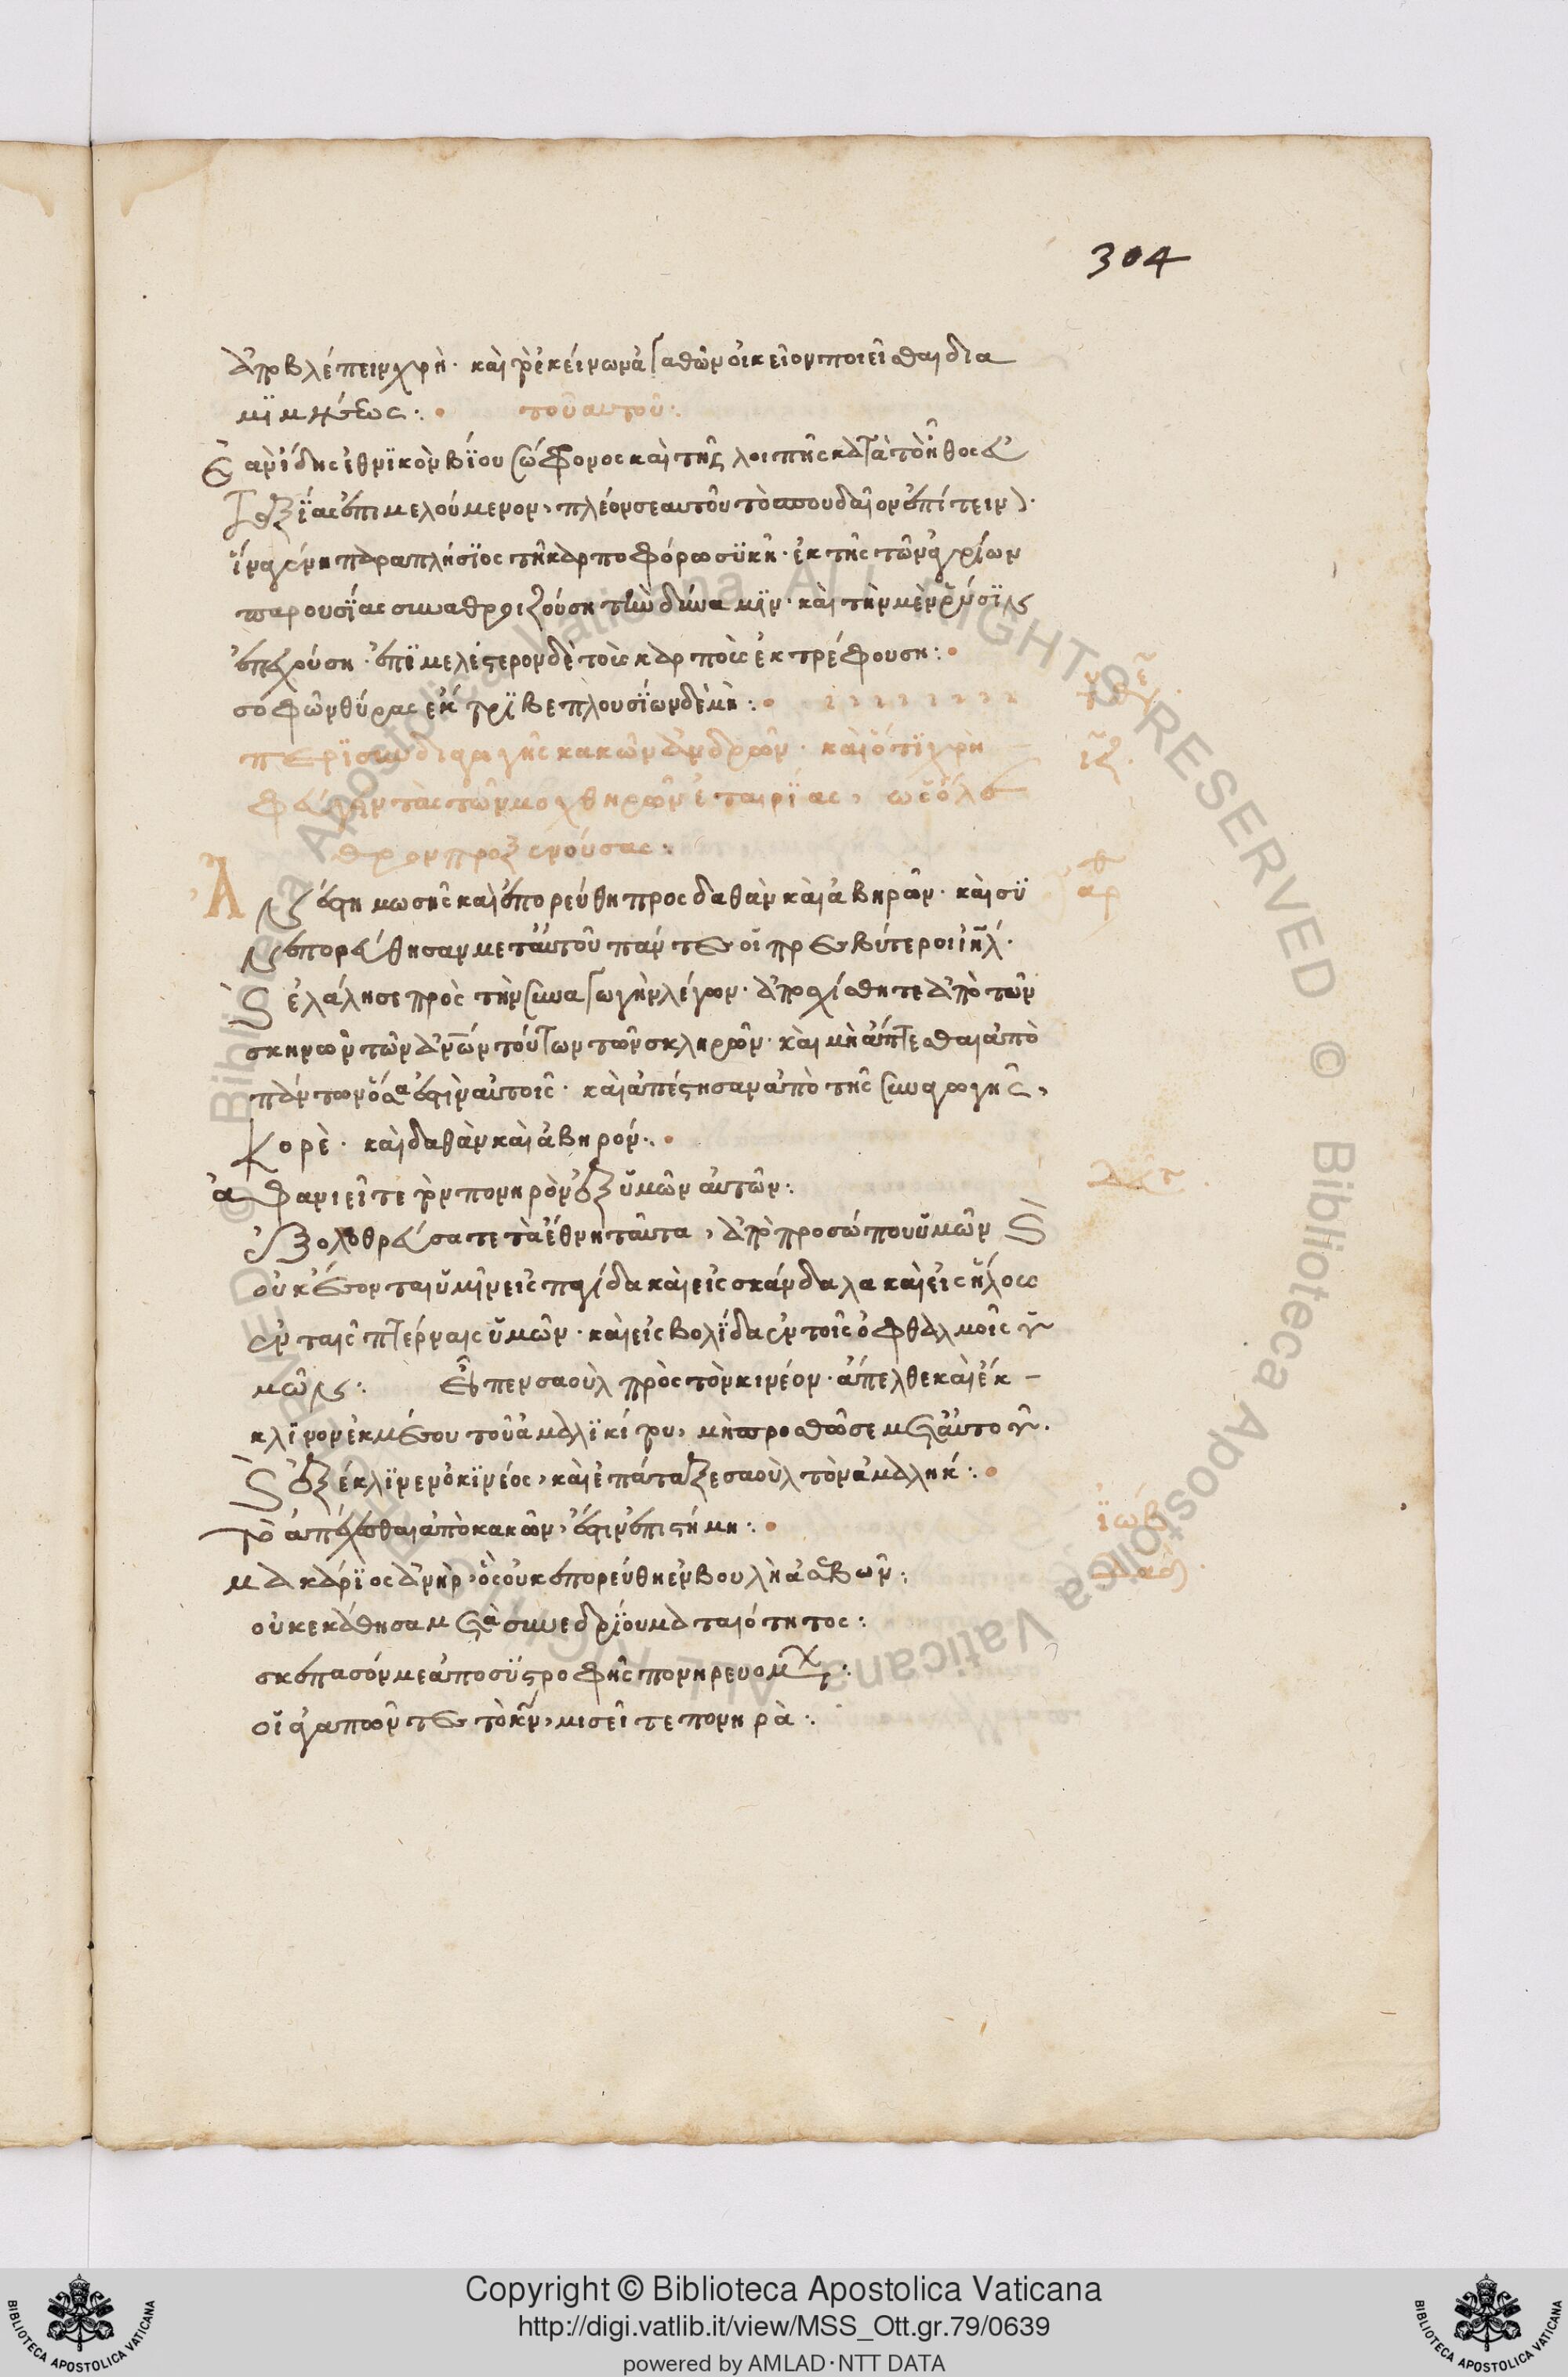 304
ἀποβλέπειν χρὴ· καὶ τὸ ἐκείνων ἀγαθὸν οἰκεῖον ποιεῖσθαι δια
μϊμήσεως:· τοῦ αυτοῦ:·
Ἐὰν ἴδης ἐθνϊκὸν βίου σώφρονος καὶ τῆς λοιπῆς κατὰ τὸ ἦθος εὐ
ταξΐας ἐπιμελούμενον, πλέον σεαυτοῦ τὸ σπουδαῖον ἐπίτεινον·
ἵνα γένη παραπλήσϊος τῆ καρποφόρω συκῆ· ἐκ τῆς τῶν ἀγρίων
παρουσΐας συναθροιζούση τὴν δύναμϊν· καὶ τὴν μὲν ῥύσϊν
ἐπεχούση· ἐπϊμελέστερον δὲ τοὺς καρποὺς ἐκτρέφουση:·
σοφῶν θύρας ἔκτρϊβε πλουσΐων δὲ μὴ:·
περϊ συνδιαγωγῆς κακῶν ἀνδρῶν· καὶ ὅτϊ χρὴ
φεύγειν τὰς τῶν μοχθηρῶν ἑταιρΐας, ὡς ὄλε
θρον προξενούσας:
ιζ.
Ἀνέστη μωσῆς καὶ ἐπορεύθη προς δαθὰν καὶ ἀβηρῶν· καὶ συ
νεπορεύθησαν μετ' αὐτοῦ πάντες οἱ πρεσβύτεροι ιηλ·
ἀρ
καὶ ἐλάλησε πρὸς τὴν συναγωγὴν λέγων· ἀποσχίσθητε ἀπὸ τῶν
σκηνῶν τῶν ἀνων τούτων τῶν σκληρῶν· καὶ μὴ ἅπτεσθαι ἀπὸ
πάντων ὅσα ἐστὶν αὐτοις· καὶ ἀπέστησαν ἀπὸ τῆς συναγωγῆς,
Κορὲ· καὶ δαθὰν καὶ ἀβηρον:·
ἀφανιεῖτε τὸν πονηρὸν ἐξ ὑμῶν αὐτῶν:
ἐξολοθρεύσατε τὰ ἔθνη ταῦτα, ἀπὸ προσώπου ὑμῶν καὶ
οὐκ ἔσονται ὑμῖν εις παγίδα καὶ εἰς σκάνδαλα καὶ εἰς ἥλους
ἐν ταις πτέρναις ὑμῶν· καὶ εἰς βολΐδας ἐν τοῖς ὀφθαλμοῖς ὑ
μῶν: Εἶπεν σαοὺλ πρὸς τὸν κινέον· ἄπελθε καὶ ἔκ–
κλϊνον ἐκ μέσου τοῦ ἀμαλϊκίτου, μὴ προσθῶ σε μετ' αὐτοῦ·
καὶ ἐξέκλϊνεν ὁ κϊνέος, καὶ ἐπάταξε σαοὺλ τὸν ἀμαλήκ:·
Τὸ ἀπέχεσθαι ἀπὸ κακῶν, ἐστὶν ἐπιστήμη:·
ἰώβ
μακάρϊος ἀνὴρ, ὃς οὐκ ἐπορεύθη ἐν βουλὴ ἀσεβῶν:
δαδ.
οὐκ εκάθησα μετὰ συνεδρΐου ματαιότητος:
σκέπασόν με ἀπο συστροφῆς πονηρευομ:
οἱ ἀγαπῶντες τὸν κν, μισεῖτε πονηρὰ:·
Copyright © Biblioteca Apostolica Vaticana
http://digi.vatlib.it/view/MSS_Ott.gr.79/0639
powered by AMLAD·NTT DATA
BIBLIOTECA APOSTOLICA VATICANA
BIBLIOTECA APOSTOLICA VATICANA
© Biblioteca Apostolica Vaticana ALL RIGHTS RESERVED © Biblioteca Apostolica Vaticana ALL RIGHTS RESERVED